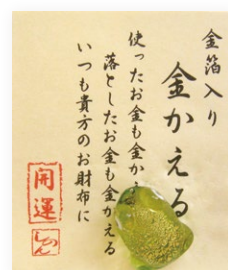 金箔入り
金かえる
使ったお金も金か
落としたお金も金かえる
いつも貴方のお財布に
開運